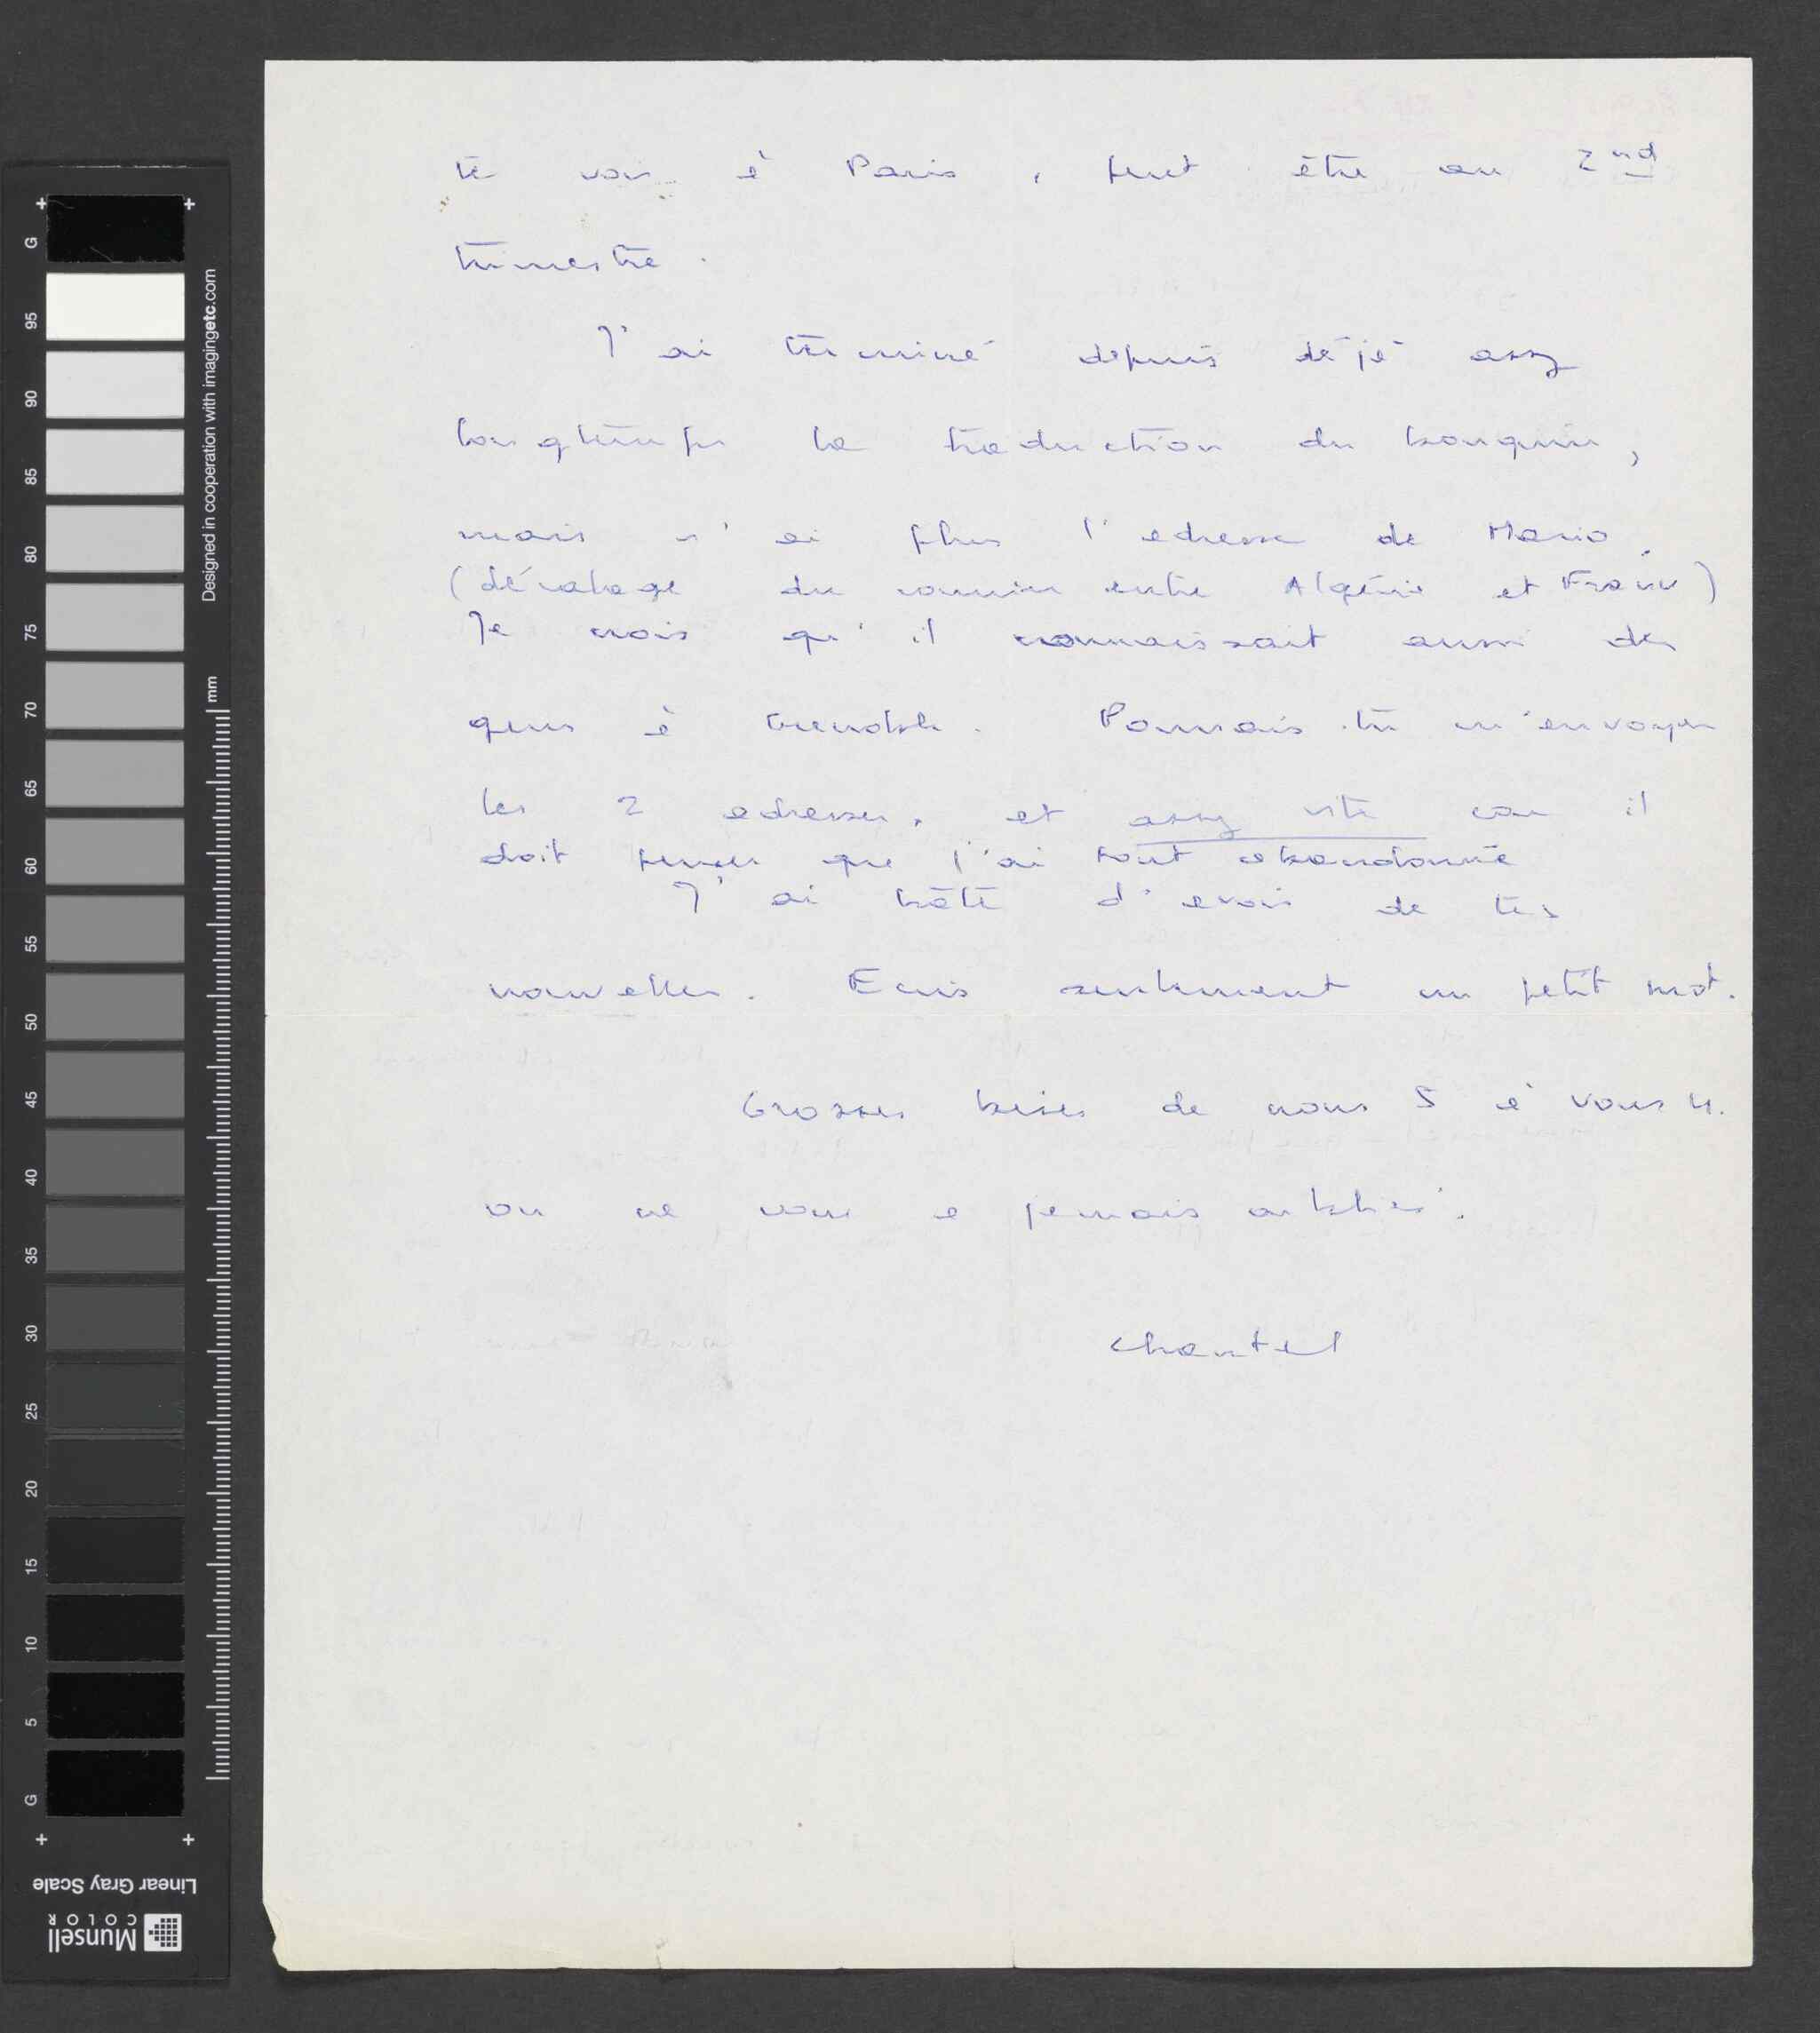 te voir à Paris, peut être au 2nd
trimestre.
J'ai terminé depuis déjà assez
longtemps la traduction du bouquin,
mais n'ai plus l'adresse de Mario.
(décalage du courrier entre Algérie et France)
Je crois qu'il connaissait aussi des
gens à Grenoble. Pourrais-tu m'envoyer
les 2 adresses, et assez vite car il
doit penser que j'ai tout abandonné
J'ai hâte d'avoir de tes
nouvelles. Ecris seulement un petit mot.
Grosses bises de nous 5 à vous 4.
on ne vous a jamais oubliés.
Chantal
G
95
90
85
80
75
70
65
60
55
50
45
40
35
30
25
20
15
10
5
G
Designed in cooperation with imagingetc.com
mm
Linear Gray Scale
Munsell
COLOR